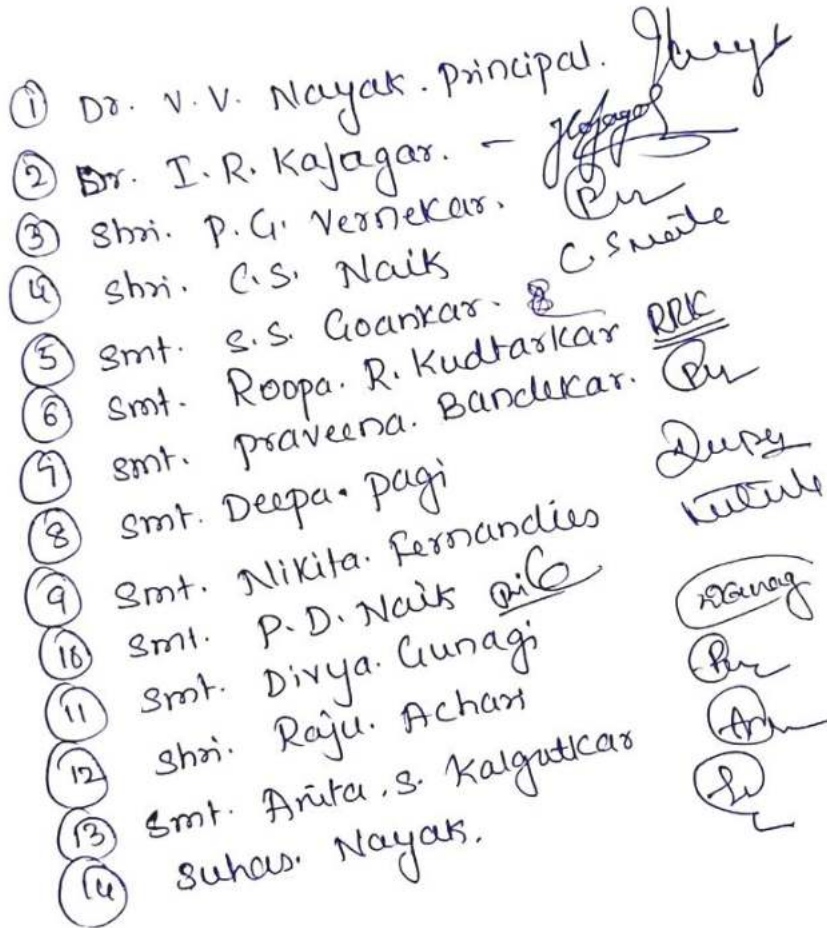 ① Dr. V.V. Nayak. Principal.
② Dr. I.R. Kajagar. -
③ Shri. P.G. Vernekar.
④ Shri. C.S. Naik C.S Naik
⑤ Smt. S.S. Goankar.
⑥ Smt. Roopa. R. Kudtarkar RRK
⑦ Smt. Praveena. Bandekar.
⑧ Smt. Deepa. Pagi
⑨ Smt. Nikita. Fernandies
⑩ Smt. P.D. Naik
⑪ Smt. Divya. Gunagi
⑫ Shri. Raju. Achari
⑬ Smt. Anita. S. Kalgutkar
⑭ Suhas. Nayak.